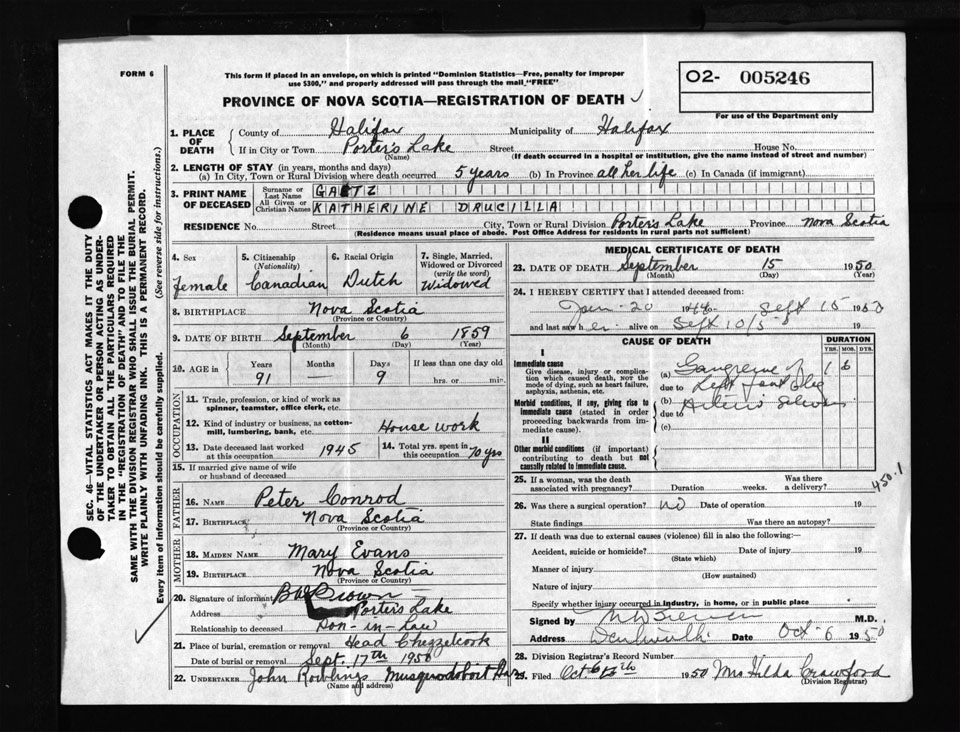 FORM 6
This form if placed in an envelope, on which is printed "Dominion Statistics—Free, penalty for improper
use $300," and properly addressed will pass through the mail "FREE"
O2- 005246
For use of the Department only
PROVINCE OF NOVA SCOTIA—REGISTRATION OF DEATH
SEC. 46—VITAL STATISTICS ACT MAKES IT THE DUTY
OF THE UNDERTAKER OR PERSON ACTING AS UNDER-
TAKER TO OBTAIN ALL THE PARTICULARS REQUIRED
IN THE "REGISTRATION OF DEATH" AND TO FILE THE
SAME WITH THE DIVISION REGISTRAR WHO SHALL ISSUE THE BURIAL PERMIT.
WRITE PLAINLY WITH UNFADING INK. THIS IS A PERMANENT RECORD.
Every item of information should be carefully supplied. (See reverse side for instructions.)
1. PLACE OF DEATH County of Halifax Municipality of Halifax
If in City or Town Porter's Lake Street House No.
(Name) (If death occurred in a hospital or institution, give the name instead of street and number)
2. LENGTH OF STAY (in years, months and days)
(a) In City, Town or Rural Division where death occurred 5 years (b) In Province all her life (c) In Canada (if immigrant)
3. PRINT NAME OF DECEASED Surname or Last Name GAETZ
All Given or Christian Names KATHERINE DRUCILLA
RESIDENCE No. Street City, Town or Rural Division Porter's Lake Province Nova Scotia
(Residence means usual place of abode. Post Office Address for residents in rural parts not sufficient)
4. Sex 5. Citizenship (Nationality) 6. Racial Origin 7. Single, Married, Widowed or Divorced (write the word)
female Canadian Dutch Widowed
8. BIRTHPLACE Nova Scotia
(Province or Country)
9. DATE OF BIRTH September 6 1859
(Month) (Day) (Year)
10. AGE in Years Months Days If less than one day old
91 9 hrs. or min.
OCCUPATION
11. Trade, profession, or kind of work as
spinner, teamster, office clerk, etc.
12. Kind of industry or business, as cotton-
mill, lumbering, bank, etc. House work
13. Date deceased last worked at this occupation 1945 14. Total yrs. spent in this occupation 70 yrs
15. If married give name of wife
or husband of deceased
FATHER
16. NAME Peter Conrod
17. BIRTHPLACE Nova Scotia
(Province or Country)
MOTHER
18. MAIDEN NAME Mary Evans
19. BIRTHPLACE Nova Scotia
(Province or Country)
20. Signature of informant Crown
Address Porter's Lake
Relationship to deceased Son-in-Law
21. Place of burial, cremation or removal Head Chezzetcook
Date of burial or removal Sept. 17th 1950
22. UNDERTAKER John Rowlings Musquodoboit Har.
(Name and address)
MEDICAL CERTIFICATE OF DEATH
23. DATE OF DEATH September 15 1950
(Month) (Day) (Year)
24. I HEREBY CERTIFY that I attended deceased from:
Jan-20 Sept 15 1950
and last saw her alive on Sept 10/50 19
CAUSE OF DEATH DURATION
YRS. MOS. DYS.
I
Immediate cause
Give disease, injury or complica-
tion which caused death, NOT the
mode of dying, such as heart failure,
asphyxia, asthenia, etc.
(a) Gangrene of
due to Left foot & leg
Morbid conditions, if any, giving rise to
immediate cause (stated in order
proceeding backwards from im-
mediate cause).
(b)
due to
(c)
II
Other morbid conditions (if important)
contributing to death but not
causally related to immediate cause.
450.1
25. If a woman, was the death associated with pregnancy? Duration weeks. Was there a delivery?
26. Was there a surgical operation? No Date of operation 19
State findings Was there an autopsy?
27. If death was due to external causes (violence) fill in also the following:—
Accident, suicide or homicide? Date of injury 19
(State which)
Manner of injury
(How sustained)
Nature of injury
Specify whether injury occurred in industry, in home, or in public place
Signed by M.D.
Address Date Oct-6 1950
28. Division Registrar's Record Number
29. Filed Oct 1950 Mrs Hilda Crawford
(Division Registrar)